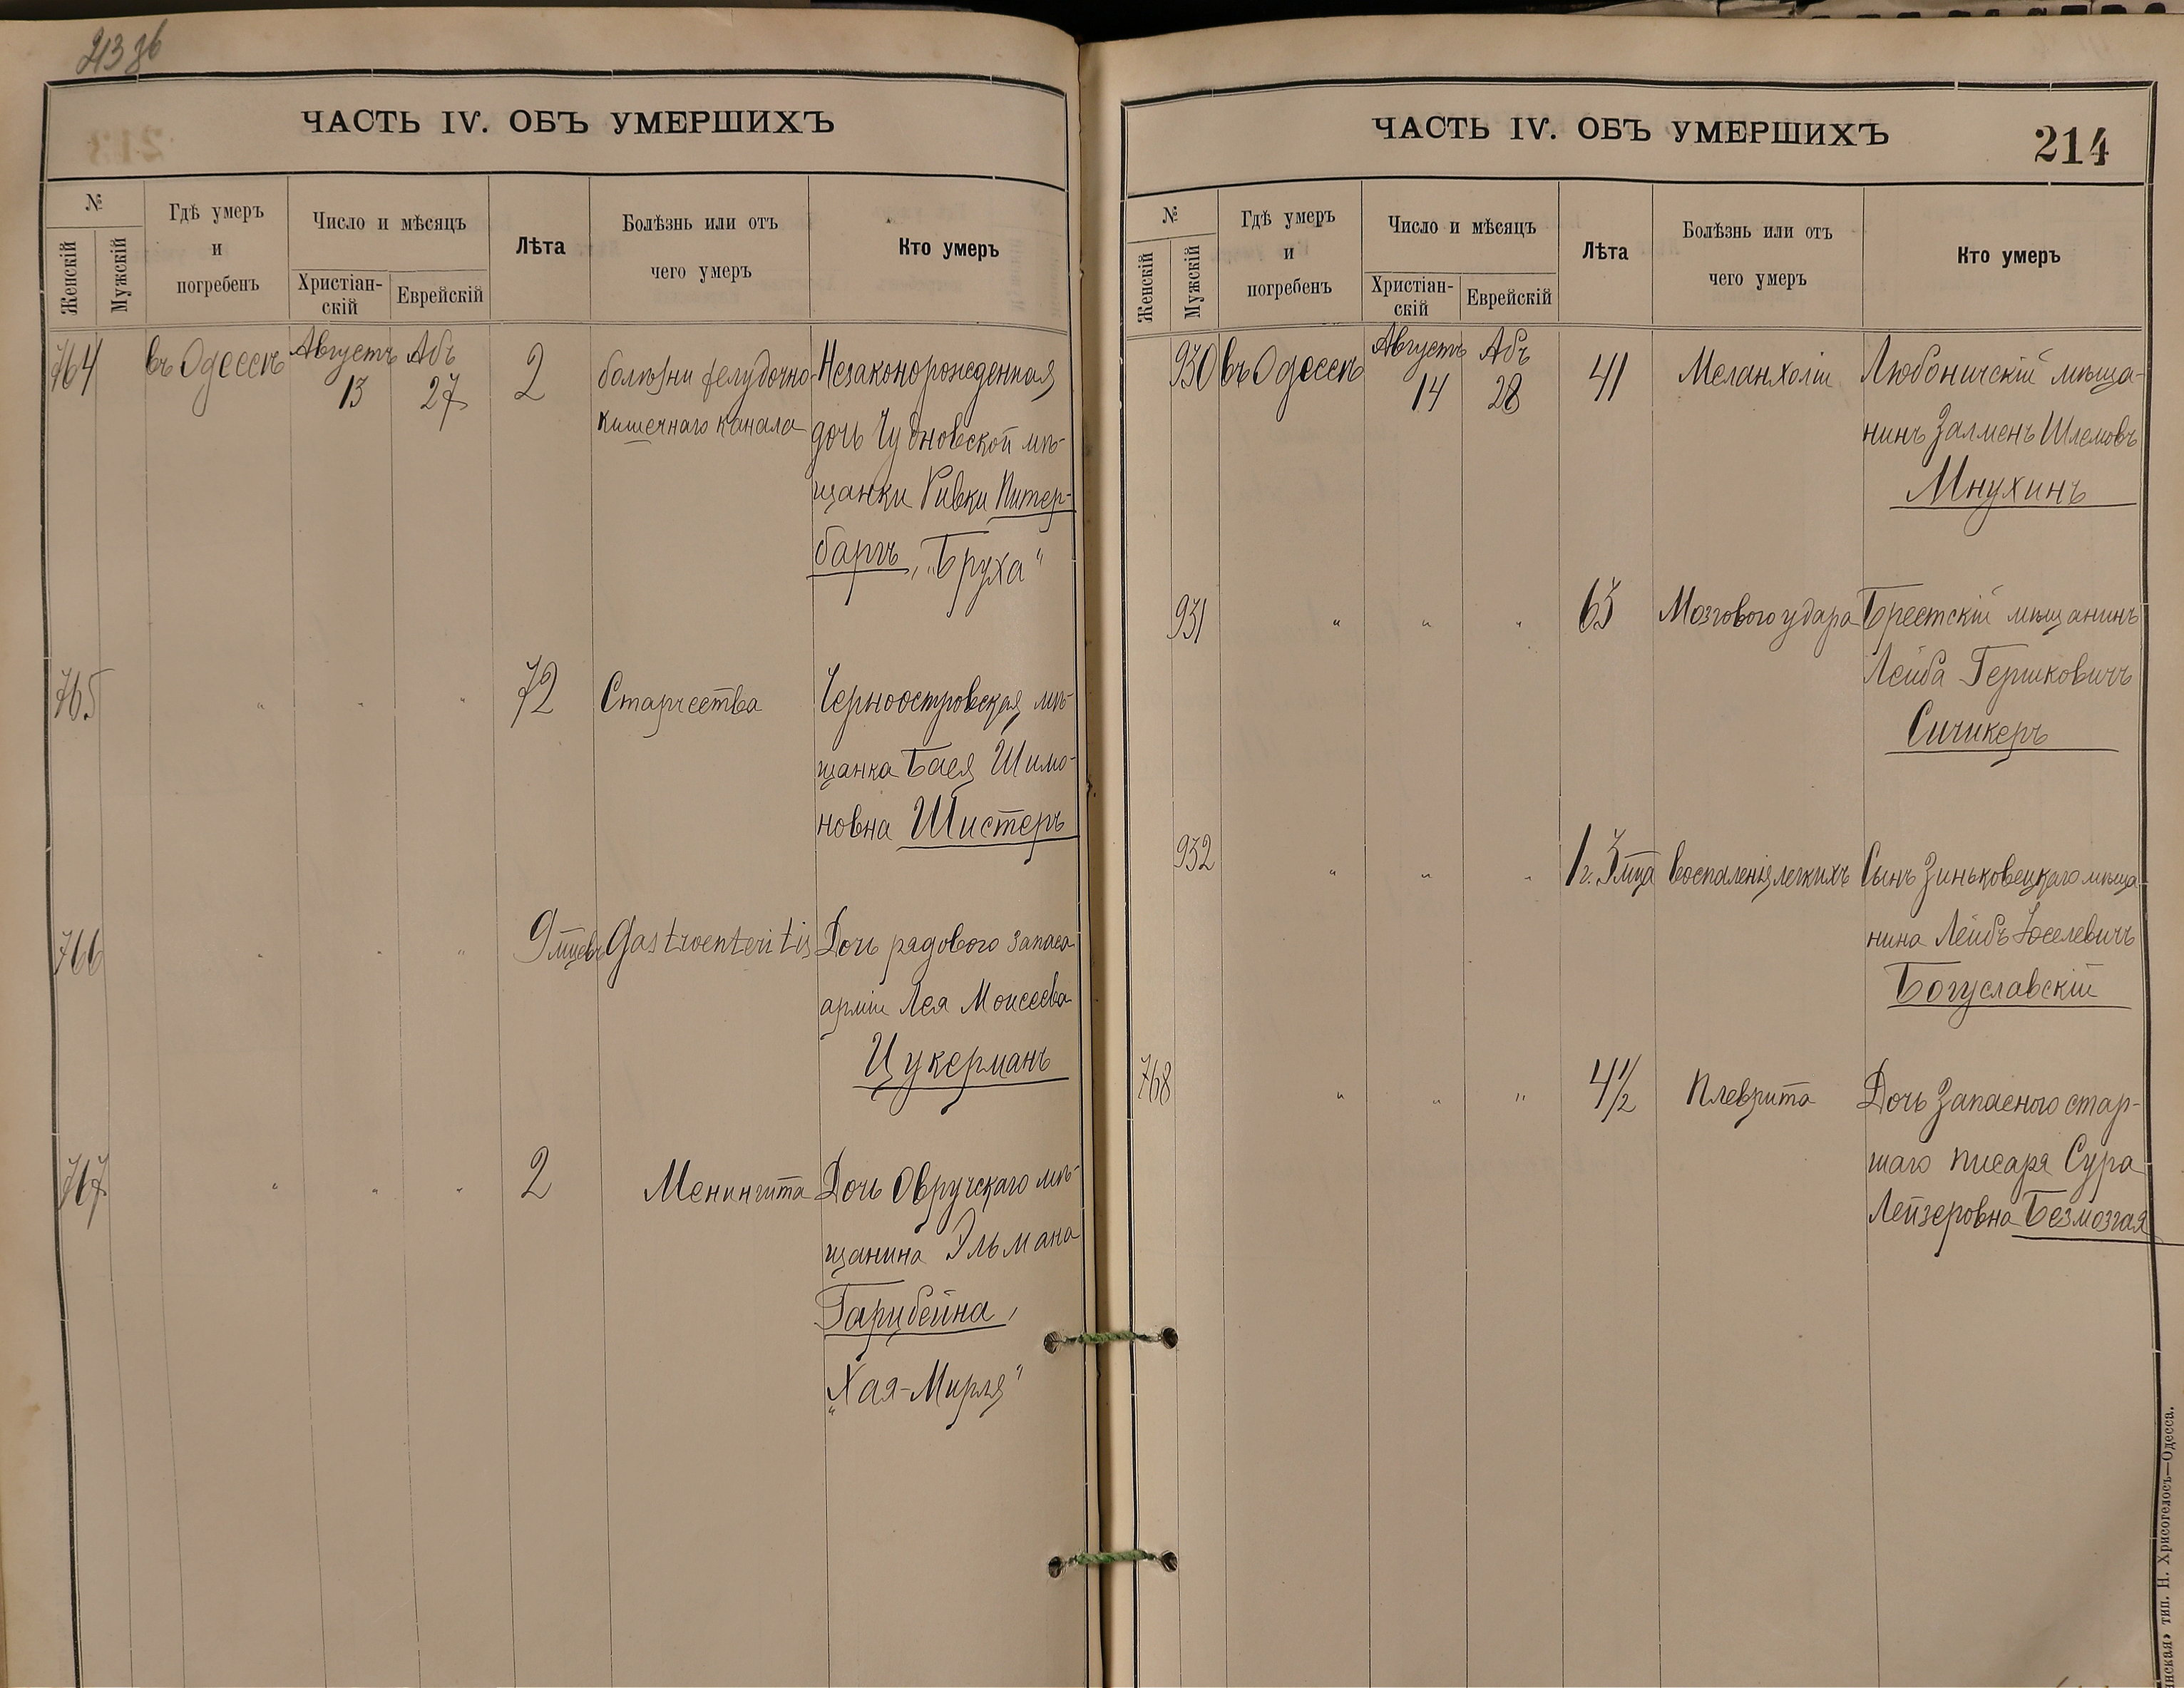 213 зв
ЧАСТЬ IV. ОБЪ УМЕРШИХЪ
№
Женскій
Мужскій
Гдѣ умеръ
и
погребенъ
Число и мѣсяцъ
Христіан-
скій
Еврейскій
Лѣта
Болѣзнь или отъ
чего умеръ
Кто умеръ
764 въ Одессѣ Августъ 13 Абъ 27 2 болѣзни желудочно- Незаконорожденная
кишечнаго канала дочь Чудновской мѣ-
щанки Ривки Питер-
баргъ, „Бруха“
765 " " " 72 Старчества Черноостровская мѣ-
щанка Бася Шимо-
новна Шистеръ
766 " " " 9 мцевъ Gastroenteritis Дочь рядового запаса
арміи Лея Моисеева
Цукерманъ
767 " " " 2 Менингита Дочь Овручскаго мѣ-
щанина Эльмана
Гарибейна,
„Хая-Мирля“
ЧАСТЬ IV. ОБЪ УМЕРШИХЪ
214
№
Женскій
Мужскій
Гдѣ умеръ
и
погребенъ
Число и мѣсяцъ
Христіан-
скій
Еврейскій
Лѣта
Болѣзнь или отъ
чего умеръ
Кто умеръ
930 въ Одессѣ Августъ 14 Абъ 28 41 Меланхоліи Любоничскій мѣща-
нинъ Залменъ Шлемовъ
Мнухинъ
931 " " " 63 Мозгового удара Брестскій мѣщанинъ
Лейба Гершковичъ
Сичикеръ
932 " " " 1 г. 3 мца Воспаленія легкихъ Сынъ Зиньковецкаго мѣща-
нина Лейбъ Іоселевичъ
Богуславскій
768 " " " 4 1/2 Плеврита Дочь Запасного стар-
шаго писаря Сура
Лейзеровна Безмозгая
тип. Н. Хрисогелосъ—Одесса.